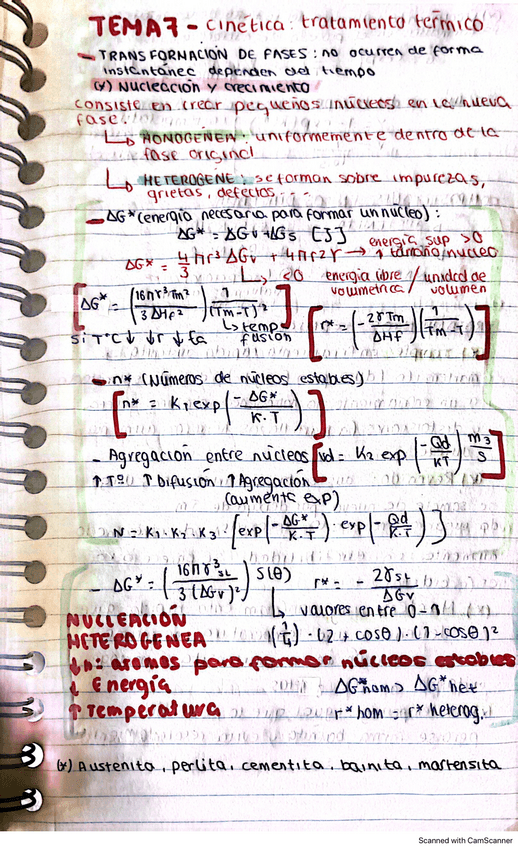 TEMA 7 - Cinética: tratamiento térmico
- TRANSFORMACIÓN DE FASES: no ocurren de forma
instantánea dependen del tiempo
(*) Nucleación y crecimiento
Consiste en crear pequeños núcleos en la nueva
fase.
↳ HOMOGÉNEA: uniformemente dentro de la
fase original
↳ HETEROGENE: se forman sobre impurezas,
grietas, defectos...
- ΔG* (energía necesaria para formar un núcleo):
ΔG* = ΔGv + ΔGs [J]
energía sup >0
ΔG* = 4/3 πr³ΔGv + 4πr²γ → ↑ tamaño núcleo
↳ <0 energía libre / unidad de
volumetrica / volumen
[ΔG* = (16πγ³Tm² / 3ΔHf²) 1/(Tm-T)²]
↳ temp
fusión
[r* = (-2γTm/ΔHf)(1/Tm-T)]
si T°C↓ ↓r ↓Ea
- n* (Números de núcleos estables)
[n* = K₁ exp(-ΔG*/K·T)]
- Agregación entre núcleos [vd = K₂ exp(-Qd/KT) m3/s]
↑Tª ↑Difusión ↑Agregación
(aumenta exp)
N = K₁·K₂·K₃·[exp(-ΔG*/K·T)·exp(-Qd/K·T)]
- ΔG* = (16πγ³SL / 3(ΔGv)²) S(θ) r* = -2γSL/ΔGv
↳ valores entre 0-1
(1/4)·(2+cosθ)·(1-cosθ)²
NUCLEACIÓN
HETEROGENEA
↓nº atomos para formar núcleos estables
↓ Energía
ΔG*hom > ΔG*het
↑ Temperatura
r*hom = r*heterog.
(*) Austenita, perlita, cementita, bainita, martensita
Scanned with CamScanner